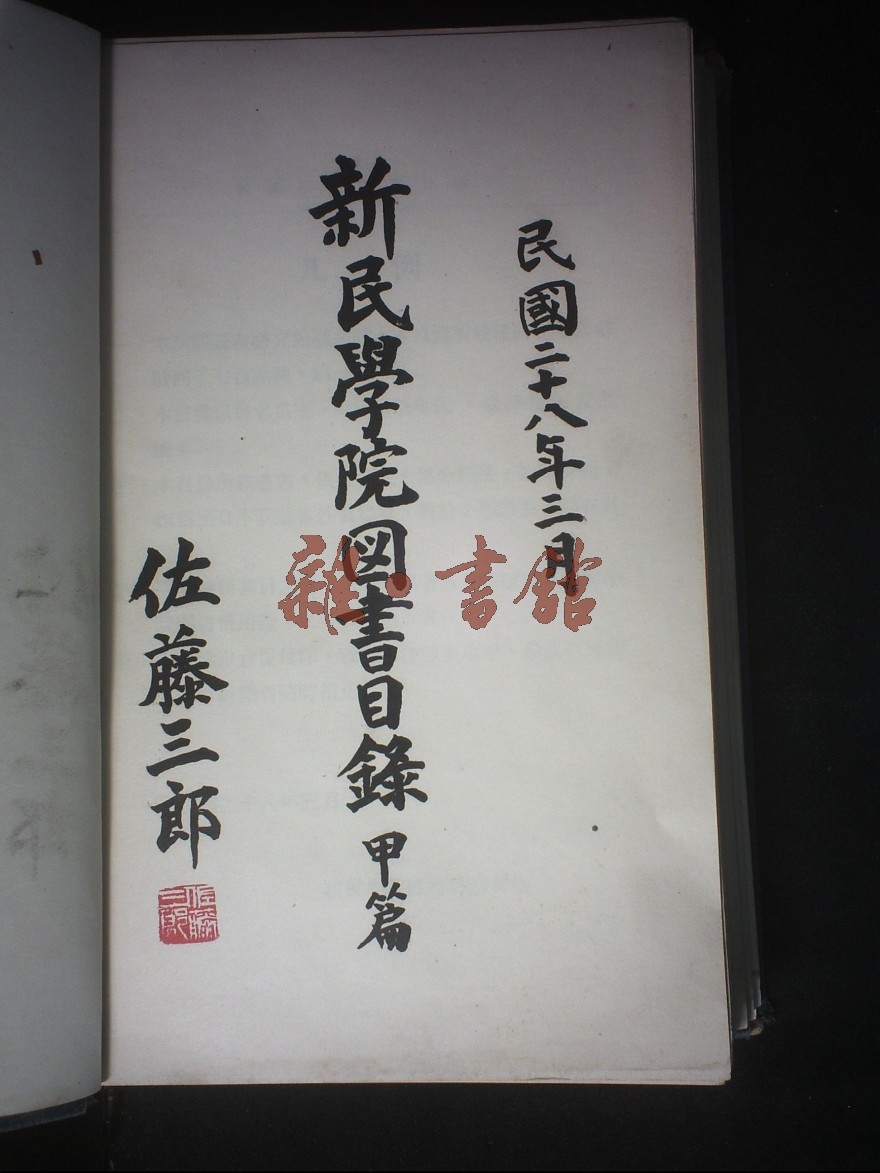 民國二十八年三月
新民學院図書目錄 甲篇
佐藤三郎
佐藤三郎
雜·書館